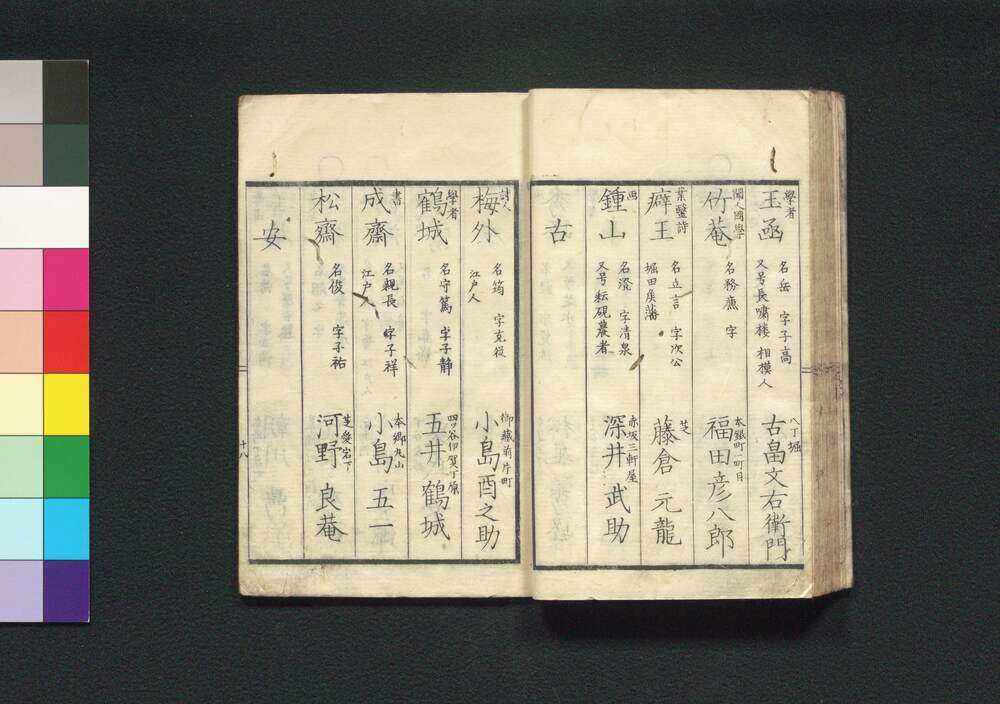 學者
玉函
名岳 字子高
又号長嘯楼 相模人
八丁堀
古畠文右衛門
聞人國學
竹菴
名務廉 字
本銀町一町目
福田彦八郎
葉醫詩
癖王
名立言 字次公
堀田矦藩
芝
藤倉元龍
画
鍾山
名澄 字清泉
又号耘硯農者
赤坂三軒屋
深井武助
古
詩人
梅外
名筠 字克従
江戸人
御藏前片町
小島酉之助
學者
鶴城
名守篤 字子静
四ッ谷伊賀丁原
五井鶴城
書
成齋
名親長 字子祥
江戸人
本郷丸山
小島五一
松齋
名俊 字子祐
芝愛宕下
河野良菴
安
十八